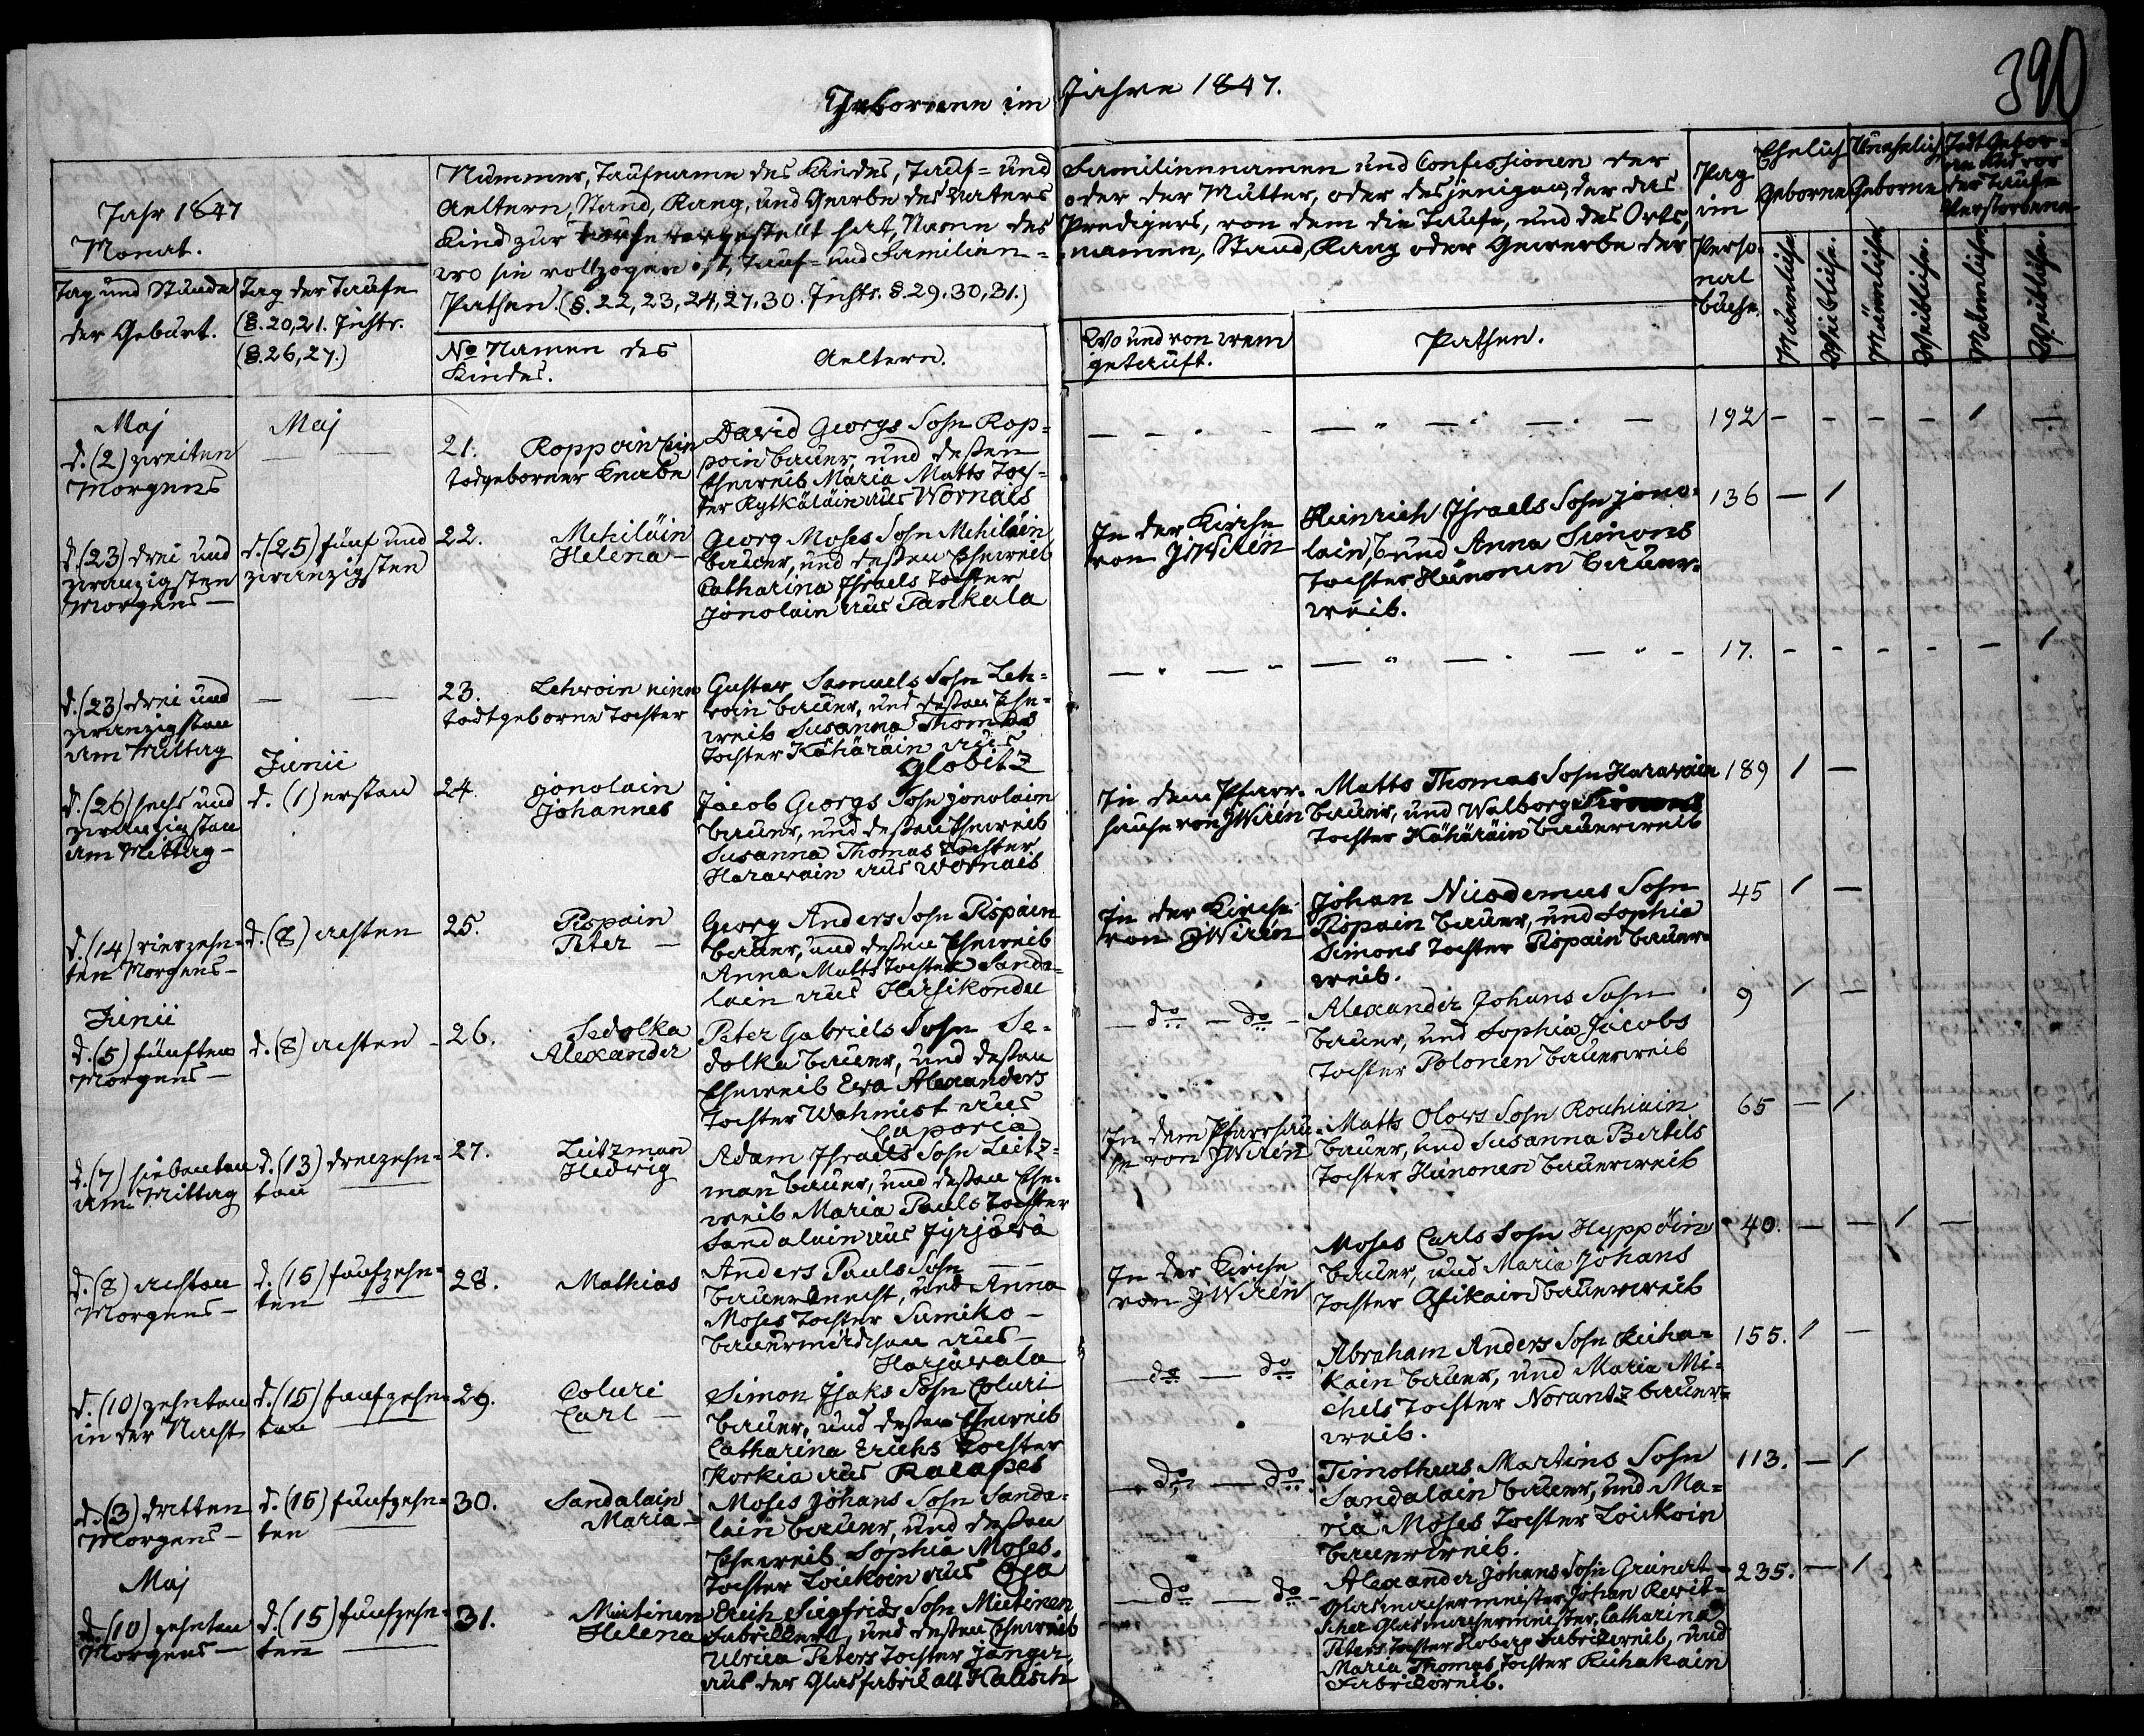 390
Geborene im Jahre 1847.
Jahr 1847
Monat.
Tag und Stunde
der Geburt.
Tag der Taufe
(§. 20, 21. Instr.
(§. 26, 27.)
Nummer, Taufname des Kindes, Tauf= und Familiennamen und Confessionen der
Aeltern, Stand, Rang, und Gewerbe des Vaters oder der Mutter, oder desjenigen, der das
Kind zur Taufe vorgestellt hat, Name des Predigers, von dem die Taufe, und des Orts,
wo sie vollzogen ist, Tauf= und Familien= namen, Stand, Rang oder Gewerbe der
Pathen. (§. 22, 23, 24, 27. 30. Instr. §. 29. 30, 31.)
No Namen des
Kindes.
Aeltern.
Wo und von wem
getauft.
Pathen.
Pag
im
Perso=
nal
buche.
Ehelich
Geborne
Unehelich
Geborne
Todt Gebor=
ne und vor
der Taufe
Verstorbene
Männliche.
Weibliche.
Männliche.
Weibliche.
Männliche.
Weibliche.
Maj
d. (2) zweiten
Morgens
Maj
21. Roppoin ein
todgeborner Knabe
David Georgs Sohn Rop=
poin bauer, und deßen
Eheweib Maria Matts Toch=
ter Rytköläin aus Wornais
192 - - - - 1 -
d. (23) drei und
zwanzigsten
Morgens —
d. (25) fünf und
zwanzigsten
22. Mehiläin
Helena —
Georg Moses Sohn Mehiläin
bauer, und deßen Eheweib
Catharina Israels Tochter
Jonolain aus Pankala
In der Kirche
von J Wirén
Heinrich Israels Sohn Jono=
lain, b und Anna Simons
Tochter Hünonen bauer=
weib.
136 — 1
d. (23) drei und
zwanzigsten
am Mittag
23. Lehwoin eine
todtgeborne Tochter
Gustav Samuels Sohn Leh=
woin bauer, und deßen Ehe=
weib Susanna Thomas
Tochter Kähäräin aus
Globitz
17. - - - - - 1
d. (26) sechs und
zwanzigsten
am Mittag —
Junii
d. (1) ersten
24. Jonolain
Johannes
Jacob Georgs Sohn Jonolain
bauer, und deßen Eheweib
Susanna Thomas Tochter
Harawain aus Wornais
In dem Pfarr=
hause von J Wirén
Matts Thomas Sohn Harawain
bauer, und Walborg
Tochter Kähäräin bauerweib
189 1 —
d. (14) vierzehn=
ten Morgens —
d. (8) achten
25. Pispain
Peter —
Georg Anders Sohn Pispain
bauer, und deßen Eheweib
Anna Matts Tochter Sanda=
lain aus Hirsikondu
In der Kirche
von J Wirén
Johan Nicodemus Sohn
Pispain bauer, und Sophia
Simons Tochter Pispain bauer=
weib.
45 1 —
Junii
d. (5) fünften
Morgens —
d. (8) achten —
26. Sedolka
Alexander
Peter Gabriels Sohn Se=
dolka bauer, und deßen
Eheweib Eva Alexanders
Tochter Wahmist aus
Caporia
— do — do —
Alexander Johans Sohn
bauer, und Sophia Jacobs
Tochter Polonen bauerweib
9 1 —
d. (7) siebenten
am Mittag
d. (13) dreizehn=
ten
27. Leitzman
Hedwig
Adam Israels Sohn Leitz=
man bauer, und deßen Ehe=
weib Maria Pauls Tochter
Sandalain aus Jyrjäwä
In dem Pfarrhau=
se von J Wirén
Matts Olows Sohn Rouhiain
bauer, und Susanna Bertils
Tochter Hünonen bauerweib
65 — 1
d. (8) achten
Morgens —
d. (15) fünfzehn=
ten
28. Mathias
Anders Pauls Sohn — —
bauerknecht, und Anna
Moses Tochter Sumiko —
bauermädchen aus —
Harjawala
In der Kirche
von J Wirén
Moses Carls Sohn Hyppöin
bauer, und Maria Johans
Tochter Asikain bauerweib
40. — — 1 —
d. (10) zehnten
in der Nacht
d. (15) fünfzehn=
ten
29. Coluri
Carl —
Simon Isaks Sohn Coluri
bauer, und deßen Eheweib
Catharina Erichs Tochter
Korkia aus
— do — do
Abraham Anders Sohn Riiha=
kain bauer, und Maria Mi=
chels Tochter Norantz bauer=
weib.
155. 1 —
d. (3) dritten
Morgens —
d. (15) fünfzehn=
ten
30. Sandalain
Maria —
Moses Johans Sohn Sanda=
lain bauer, und deßen
Eheweib Sophia Moses
Tochter Loukoin aus
— do — do
Timotheus Martins Sohn
Sandalain bauer, und Ma=
ria Moses Tochter Loukoin
bauerweib.
113. — 1
Maj
d. (10) zehnten
Morgens —
d. (15) fünfzehn=
ten
31. Mietinen
Helena
Erich Siegfrids Sohn Mietinen
Fabrikkerl, und deßen Eheweib
Ulrica Peters Tochter Janger,
aus der Glasfabrik alt Kalisch
— do — do —
Alexander Johans Sohn Grünert
Glasmachermeister, Johan
Glasmachermeister, Catharina
Peters Tochter Hoberg Fabrikweib, und
Maria Thomas Tochter Riihakain
Fabrikweib.
235. — 1